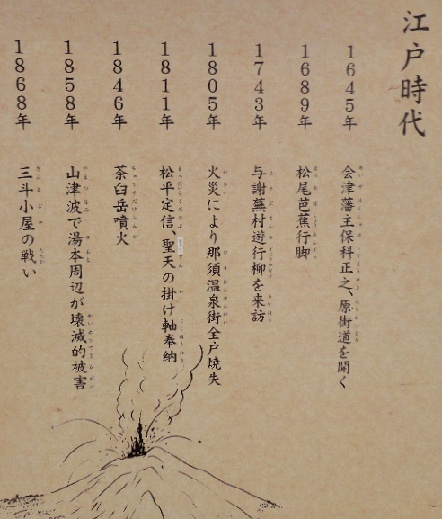 江戸時代
1645年 会津藩主保科正之、原街道を開く
1689年 松尾芭蕉行脚
1743年 与謝蕪村遊行柳を来訪
1805年 火災により那須温泉街全戸焼失
1811年 松平定信、聖天の掛け軸奉納
1846年 茶臼岳噴火
1858年 山津波で湯本周辺が壊滅的被害
1868年 三斗小屋の戦い